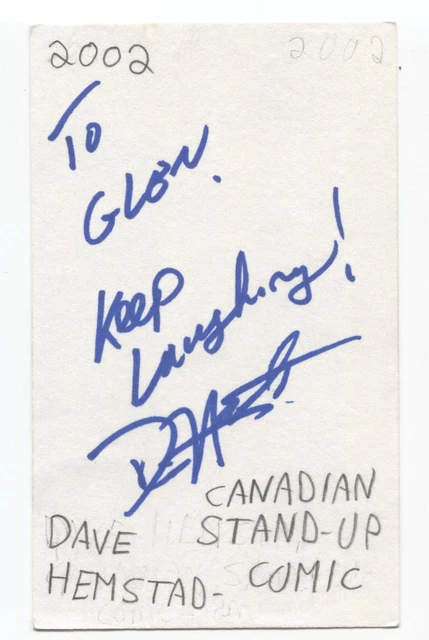 2002 2002
TO
GLEN.
KEEP
Laughing!
CANADIAN
DAVE STAND-UP
HEMSTAD- COMIC